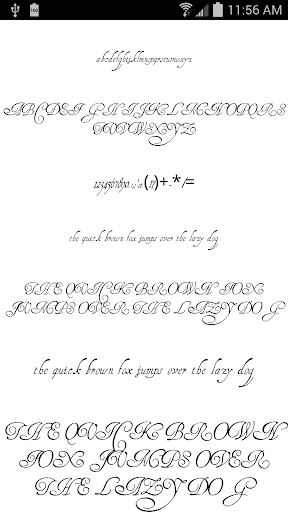 100
11:56 AM
abcdefghijklmnopqrstuvwxyz
ABCDEFGHIJKLMNOPQRS
TUVWXYZ
the quick brown fox jumps over the lazy dog
THE QUICK BROWN FOX
JUMPS OVER THE LAZY DOG
the quick brown fox jumps over the lazy dog
THE QUICK BROWN
FOX JUMPS OVER
THE LAZY DOG